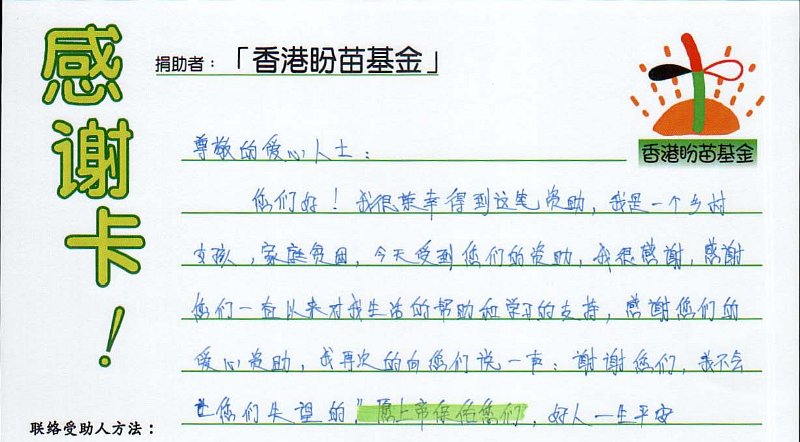 感谢卡！
捐助者：「香港盼苗基金」
香港盼苗基金
尊敬的爱心人士：
您们好！我很荣幸得到这笔资助，我是一个乡村
女孩，家庭贫困，今天受到您们的资助，我很感谢，感谢
您们一直以来对我生活的帮助和学习的支持，感谢您们的
爱心资助，我再次的向您们说一声：谢谢您们，我不会
让您们失望的，"愿上帝保佑您们，好人一生平安
联络受助人方法：